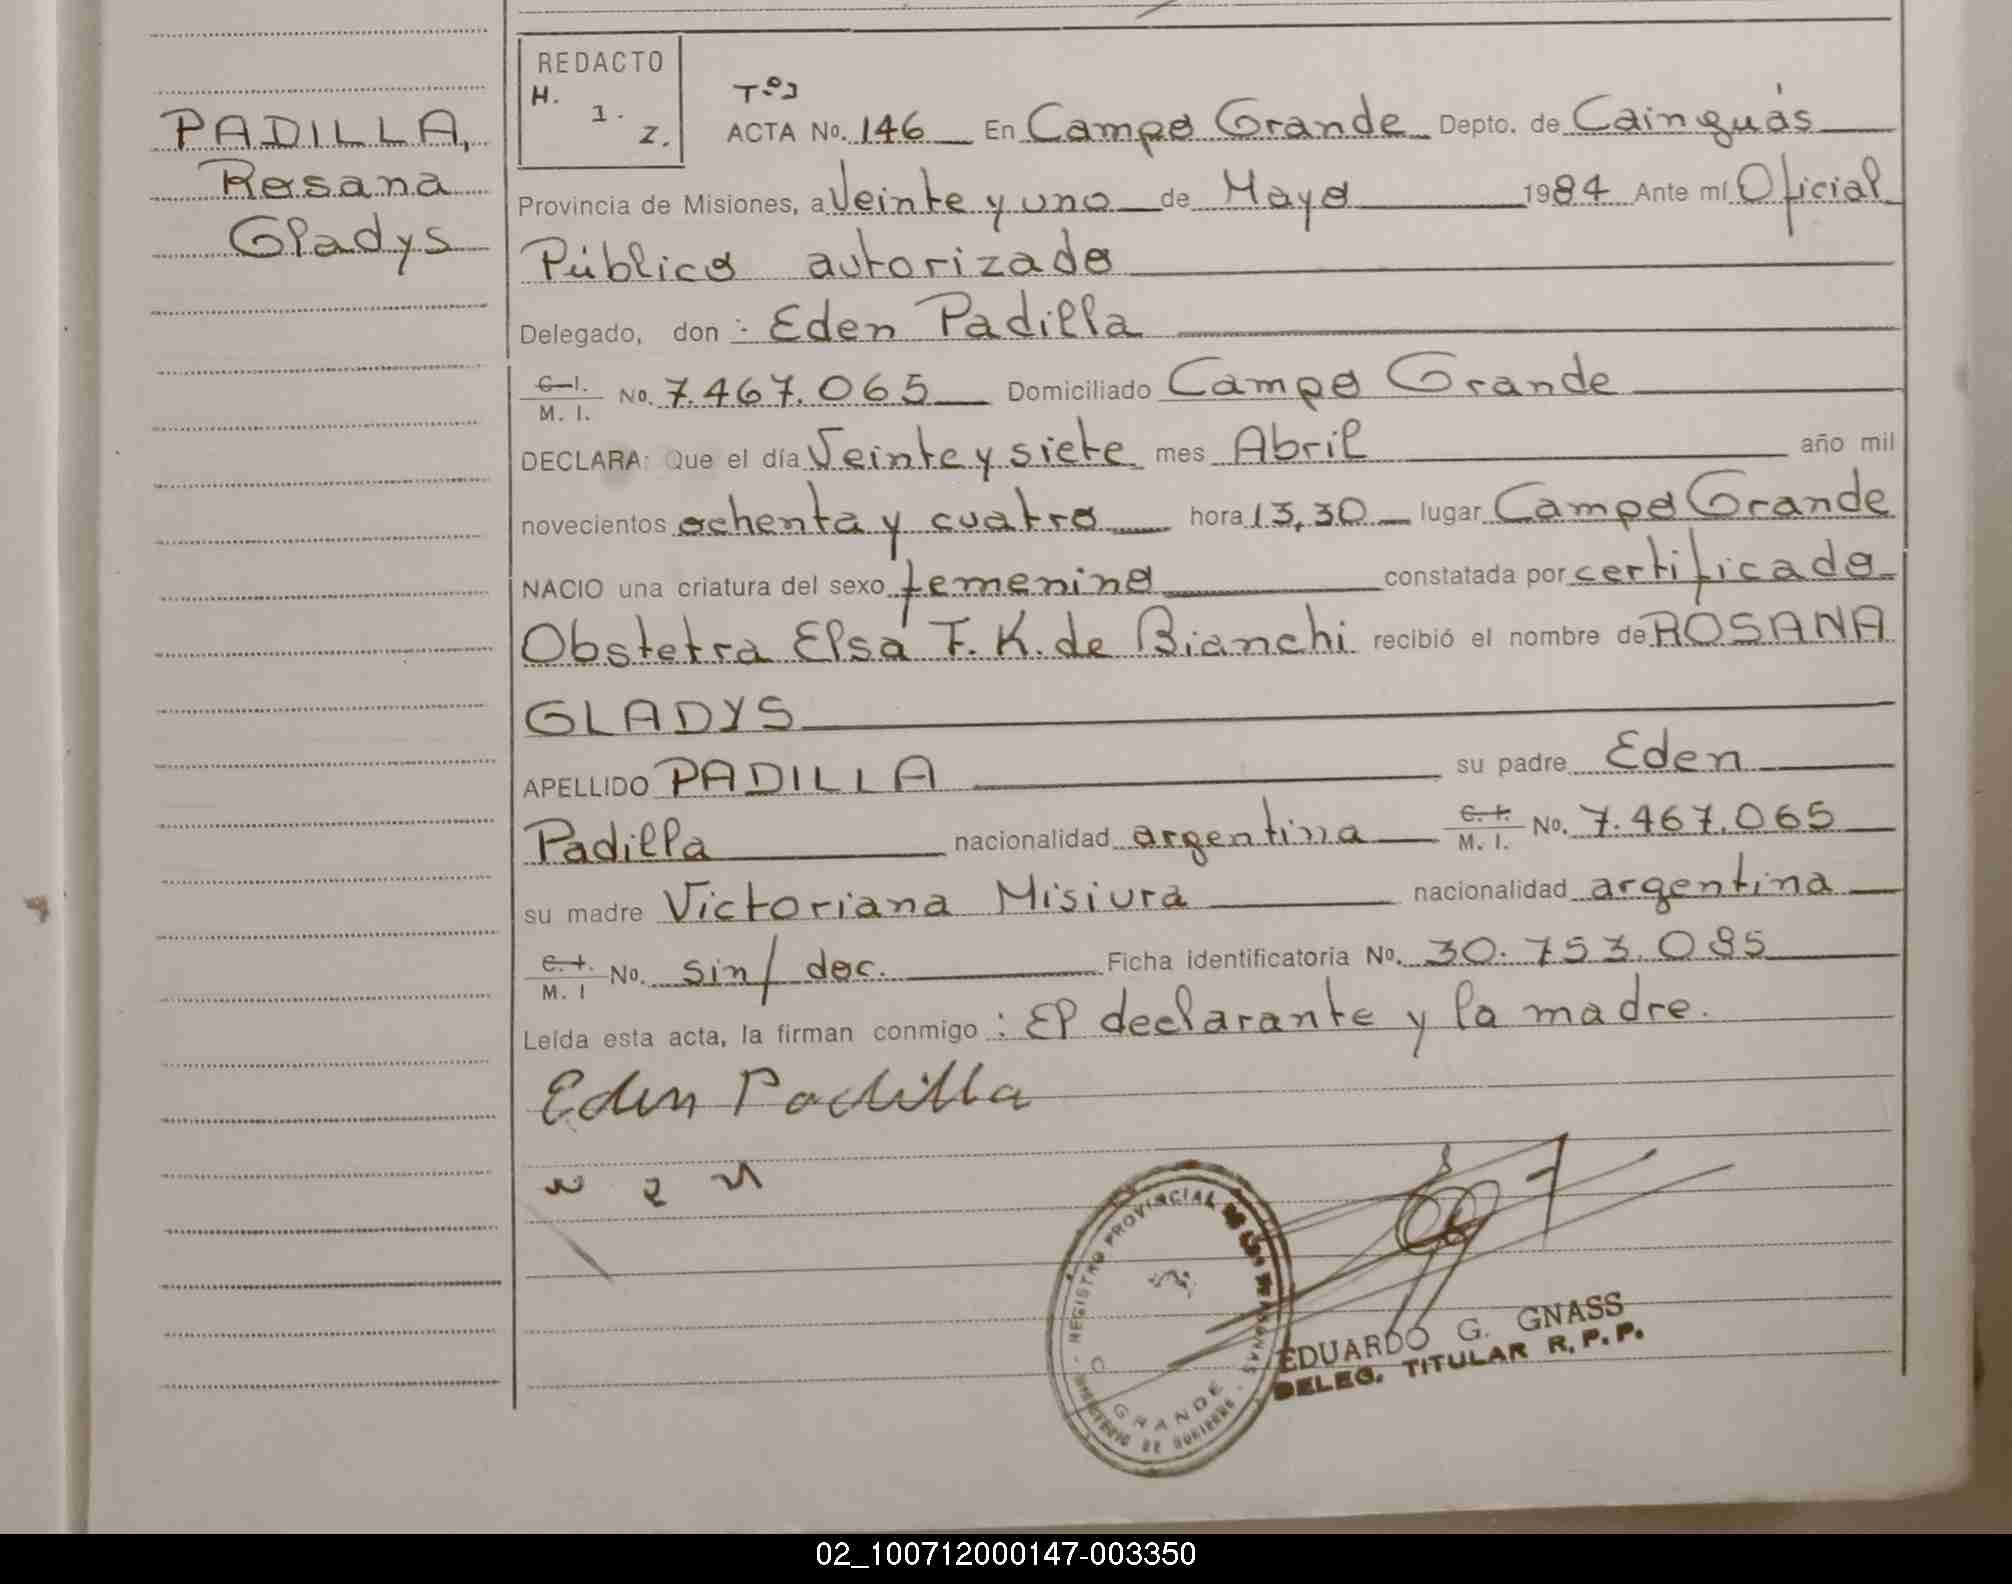 PADILLA,
Rosana
Gladys
REDACTO
H.
1.
Z.
Tº1
ACTA No. 146 En Campo Grande Depto. de Cainguás
Provincia de Misiones, a Veinte y uno de Mayo 1984 Ante mí Oficial
Público autorizado
Delegado, don :- Eden Padilla
C.I. M. I. No. 7.467.065 Domiciliado Campo Grande
DECLARA: Que el día Veinte y siete mes Abril año mil
novecientos ochenta y cuatro hora 13,30 lugar Campo Grande
NACIO una criatura del sexo femenino constatada por certificado
Obstetra Elsa F. K. de Bianchi recibió el nombre de ROSANA
GLADYS
APELLIDO PADILLA su padre Eden
Padilla nacionalidad argentina C.I. M. I. No. 7.467.065
su madre Victoriana Misiura nacionalidad argentina
C.I. M. I No. sin/ doc. Ficha identificatoria No. 30.753.085
Leída esta acta, la firman conmigo : El declarante y la madre.
Eden Padilla
REGISTRO PROVINCIAL DE LAS PERSONAS
GRANDE
MINISTERIO DE GOBIERNO
EDUARDO G. GNASS
DELEG. TITULAR R. P. P.
02_100712000147-003350